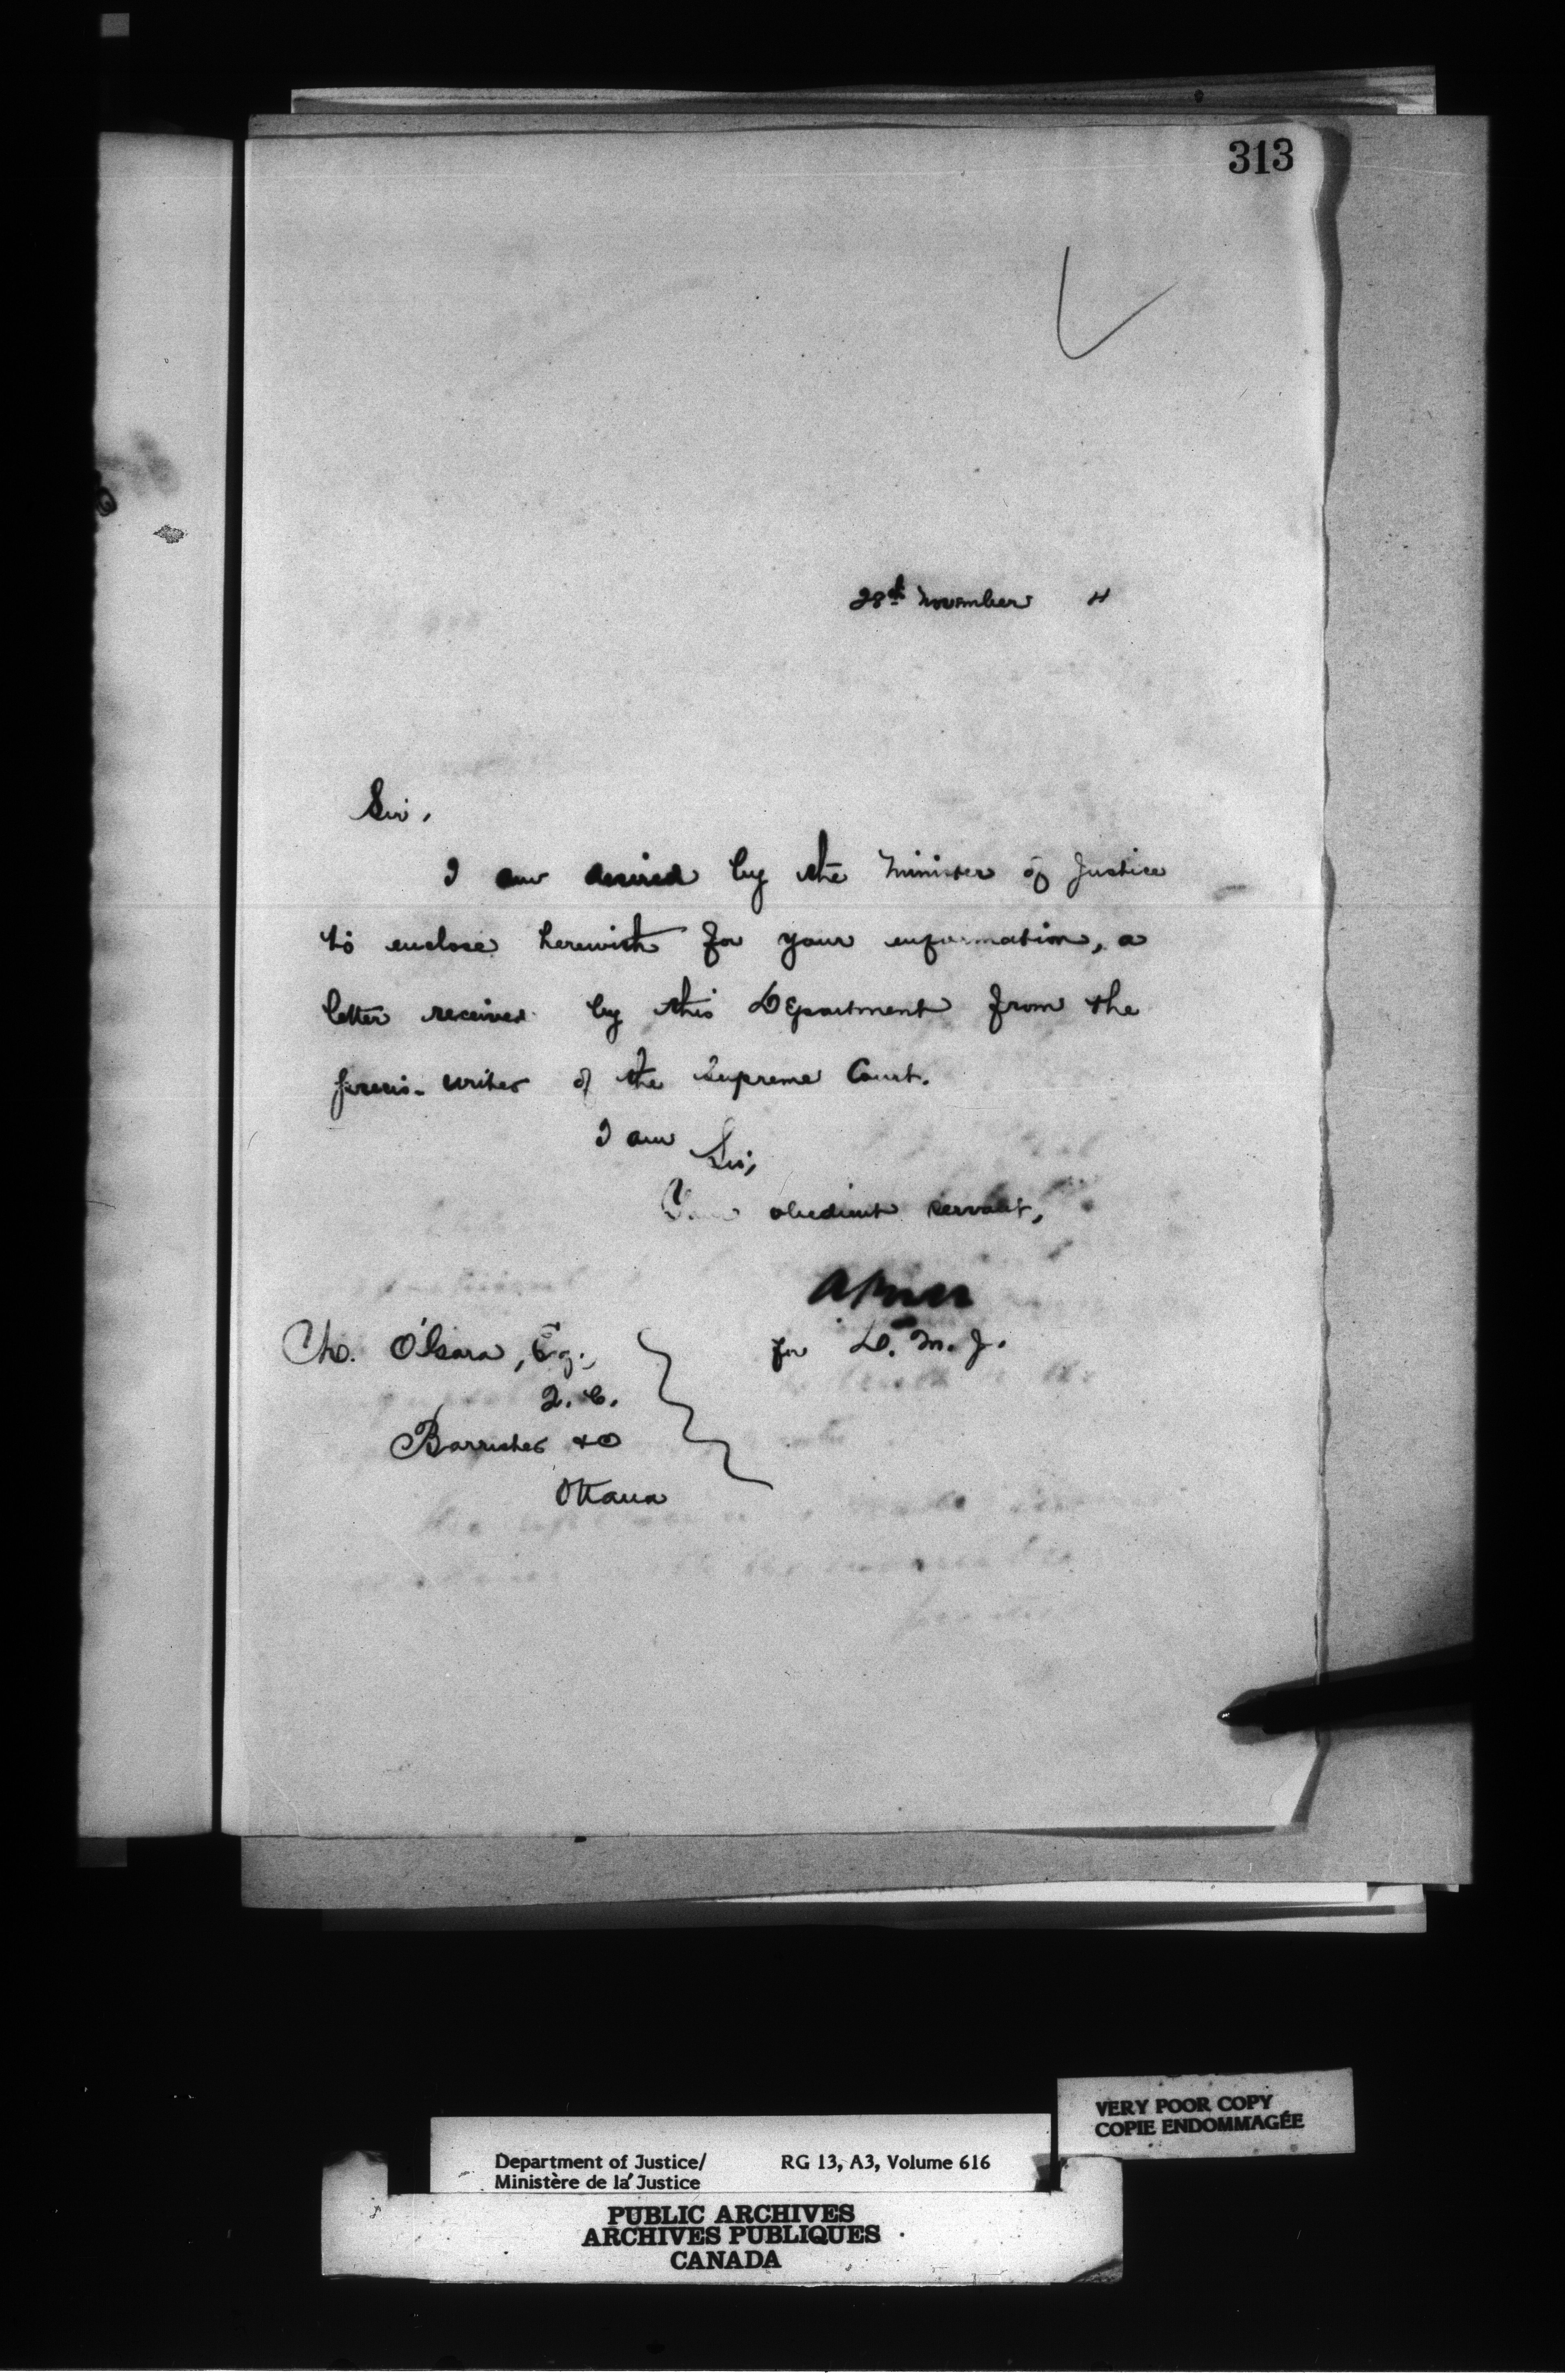 313
28th November 4
Sir,
I am desired by the Minister of Justice
to enclose herewith for your information, a
letter received by this Department from the
precis-writer of the Supreme Court.
I am
Sir,
Your obedient servant,
for D. M. J.
O'Gara, Esq.,
Q. C.
Barrister &c
Ottawa
VERY POOR COPY
COPIE ENDOMMAGÉE
Department of Justice/ RG 13, A3, Volume 616
Ministère de la Justice
PUBLIC ARCHIVES
ARCHIVES PUBLIQUES
CANADA